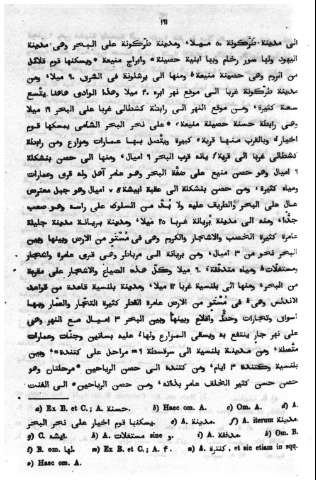 ١٩١
الى مدينة طرّكونة ٥٠ ميلا، ومدينة طرّكونة على البحر وهى مدينة
اليهود ولها سور رخام وبها ابنية حصينة وابراج منيعة ويسكنها قوم قلائل
من الروم وهى حصينة منيعة ومنها الى برشلونة فى الشرق ٦٠ ميلا، ومن
مدينة طرّكونة غربا الى موقع نهر ابره ٤٠ ميلا وهذا الوادى هاهنا يتّسع
سعة كثيرة، ومن موقع النهر الى رابطة كشطالى غربا على البحر ١٦ ميلا
وهى رابطة حسنة حصينة منيعة على نحر البحر الشامى يمسكها قوم
اخيار وبالقرب منها قرية كبيرة ويتّصل بها عمارات ومزارع ومن رابطة
كشطالى غربا الى قرية يانه قرب البحر ٦ اميال، ومنها الى حصن بنشكلة
٦ اميال وهو حصن منيع على ضفّة البحر وهو عامر آهل وله قرى وعمارات
ومياه كثيرة، ومن حصن بنشكلة الى عقبة ابيشة ٧ اميال وهو جبل معترض
عالٍ على البحر والطريف عليه ولا بُدّ من السلوك على راسه وهو صعب
جدّا، ومنه الى مدينة بُريانة غربا ٢٥ ميلا، ومدينة بريانة مدينة جليلة
عامرة كثيرة الخصب والاشجار والكروم وهى فى مُستَوٍ من الارض وبينها وبين
البحر نحو من ٣ اميال، ومن بريانة الى مرباطر وهى قرى عامرة واشجار
ومستغلّات ومياه متدفّقة ٢٠ ميلا وكلّ هذه الضياع والاشجار على مقربة
من البحر، ومنها الى بلنسية غربا ١٢ ميلا، ومدينة بلنسية قاعدة من قواعد
الاندلس وهى فى مُستَوٍ من الارض عامرة القطر كثيرة التجّار والعمّار وبها
اسواق وتجارات وحطّ واقلاع وبينها وبين البحر ٣ اميال مع النهر وهى
على نهر جارٍ ينتفع به ويسقى المزارع ولها عليه بساتين وجنّات وعمارات
متّصلة، ومن مدينة بلنسية الى سرقسطة ٩ مراحل على كتندة وبين
بلنسية وكتندة ٣ ايام، ومن كتندة الى حصن الرياحين مرحلتان وهو
حصن حسن كثير الخلف عامر بذاته، ومن حصن الرياحين الى القنت
a) Ex B. et C.; A. حسنة. b) Haec om. A. c) Om. A. d) A.
مدينة. e) A. ويسكنها قوم اخيار على نحر البحر. f) A. iterum مدينة.
g) C. ابيشه. h) A. مستغلات sine و. i) A. مدفقة. k) Om. B.
l) B. om. لها. m) Ex B. et C.; A. ٢. n) A. كتندة, et sic etiam in sqq.
o) Haec om. A.